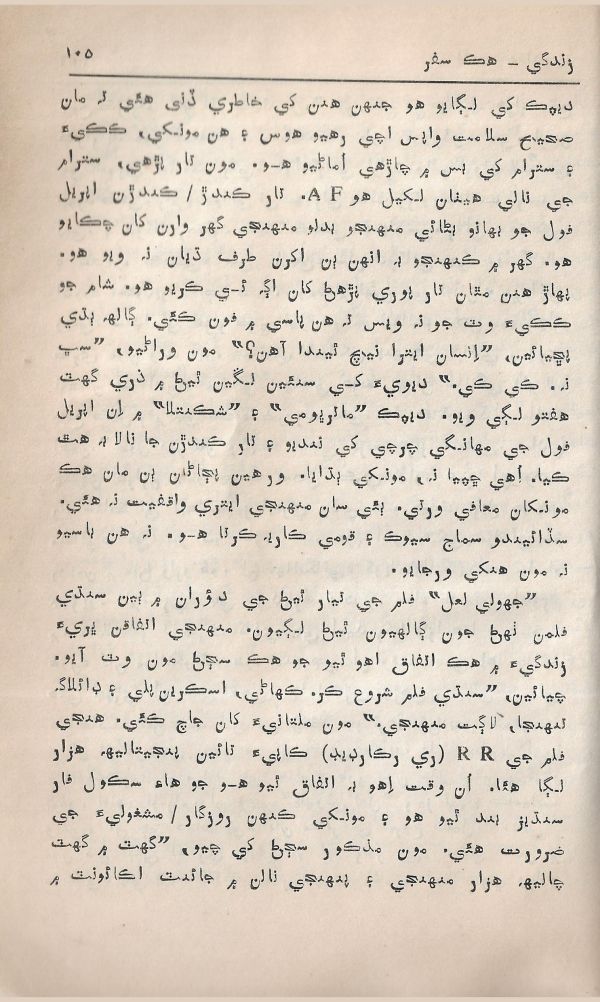 زندگي – هڪ سفر
١٠٥
ديپڪ کي لڳايو هو جنهن هنن کي خاطري ڏني هئي تہ مان
صحيح سلامت واپس اچي رهيو هوس ۽ هن مونکي، ڪڪيءَ
۽ سترام کي بس ۾ چاڙهي اُماڻيو هو. مون تار پڙهي، سترام
جي نالي هيٺان لکيل هو A F. تار ڪندڙ / ڪندڙن اپريل
فول جو بهانو بڻائي منهنجو بدلو منهنجي گهر وارن کان چڪايو
هو. گهر ۾ ڪنهنجو بہ انهن ٻن اکرن طرف ڌيان نہ ويو هو.
پهاڙ هنن مٿان تار پوري پڙهڻ کان اڳہ ئي ڪريو هو. شام جو
ڪڪيءَ وٽ جو نہ ويس تہ هن پاسي ۾ فون ڪئي. ڳالهہ ٻڌي
پڇيائين، ”انسان ايترا نيچ ٿيندا آهن؟“ مون وراڻيو، ”سڀ
نہ. ڪي ڪي.“ ديويءَ کي سنئين لڱين ٿيڻ ۾ ذري گهٽ
هفتو لڳي ويو. ديپڪ ”ماٿريومي“ ۽ ”شڪنتلا“ ۾ اِن اپريل
فول جي مهانگي چرچي کي ننديو ۽ تار ڪندڙن جا نالا بہ هٿ
ڪيا. اُهي ڇپيا نہ، مونکي ٻڌايا. ورهين پڄاڻان ٻن مان هڪ
مونکان معافي ورتي. ٻئي سان منهنجي ايتري واقفيت نہ هئي.
سڏائيندو سماج سيوڪ ۽ قومي ڪاريہ ڪرتا هو. نہ هن ٻاسيو
نہ مون هنکي ورجايو.
”جهولي لعل“ فلم جي تيار ٿيڻ جي دؤران ۾ ٻين سنڌي
فلمن ٺهڻ جون ڳالهيون ٿيڻ لڳيون. منهنجي اتفاقن ڀريءَ
زندگيءَ ۾ هڪ اتفاق اهو ٿيو جو هڪ سڄڻ مون وٽ آيو.
چيائين، ”سنڌي فلم شروع ڪر. ڪهاڻي، اسڪرين پلي ۽ ڊائلاگ
تنهنجا، لاڳت منهنجي.“ مون ملتانيءَ کان جاچ ڪئي. هنجي
فلم جي R R (ري رڪارڊيڊ) ڪاپيءَ تائين پنجيتاليهہ هزار
لڳا هئا. اُن وقت اِهو بہ اتفاق ٿيو هو جو هاءِ سڪول فار
سنڌيز بند ٿيو هو ۽ مونکي ڪنهن روزگار / مشغوليءَ جي
ضرورت هئي. مون مذڪور سڄڻ کي چيو، ”گهٽ ۾ گهٽ
چاليهہ هزار منهنجي ۽ پنهنجي نالن ۾ جائنٽ اڪائونٽ ۾